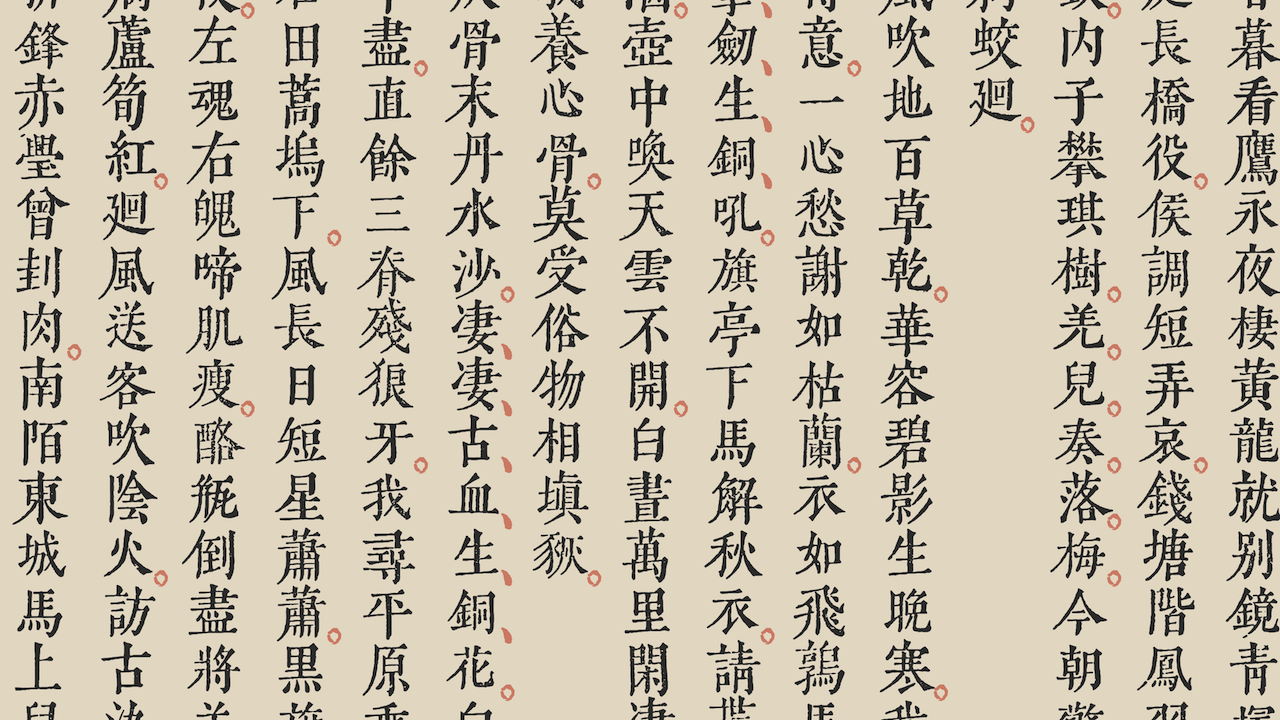 暮看鷹永夜棲黃龍就别鏡靑
長橋役。侯調短弄哀。錢塘階鳳
内子攀琪樹。羌。兒。奏。落。梅。今朝
蛟廻。
吹地百草乾。華容碧影生晚寒。
意。一心愁謝如枯蘭。衣如飛鶉
劒、生、銅、吼。旗亭下馬解秋衣。請
壺中喚天雲不開。白晝萬里閑凄
養心骨。莫受俗物相塡豗。
骨末丹水沙。凄、凄、古、血、生、銅、花。白
盡。直餘三脊殘狼牙。我尋平原乘
田蒿塢下。風長日短星蕭蕭。黑旗
左魂右魄啼肌瘦。酪瓶倒盡將羊
蘆筍紅。廻風送客吹陰火。訪古
鋒赤璺曾刲肉。南陌東城馬上兒